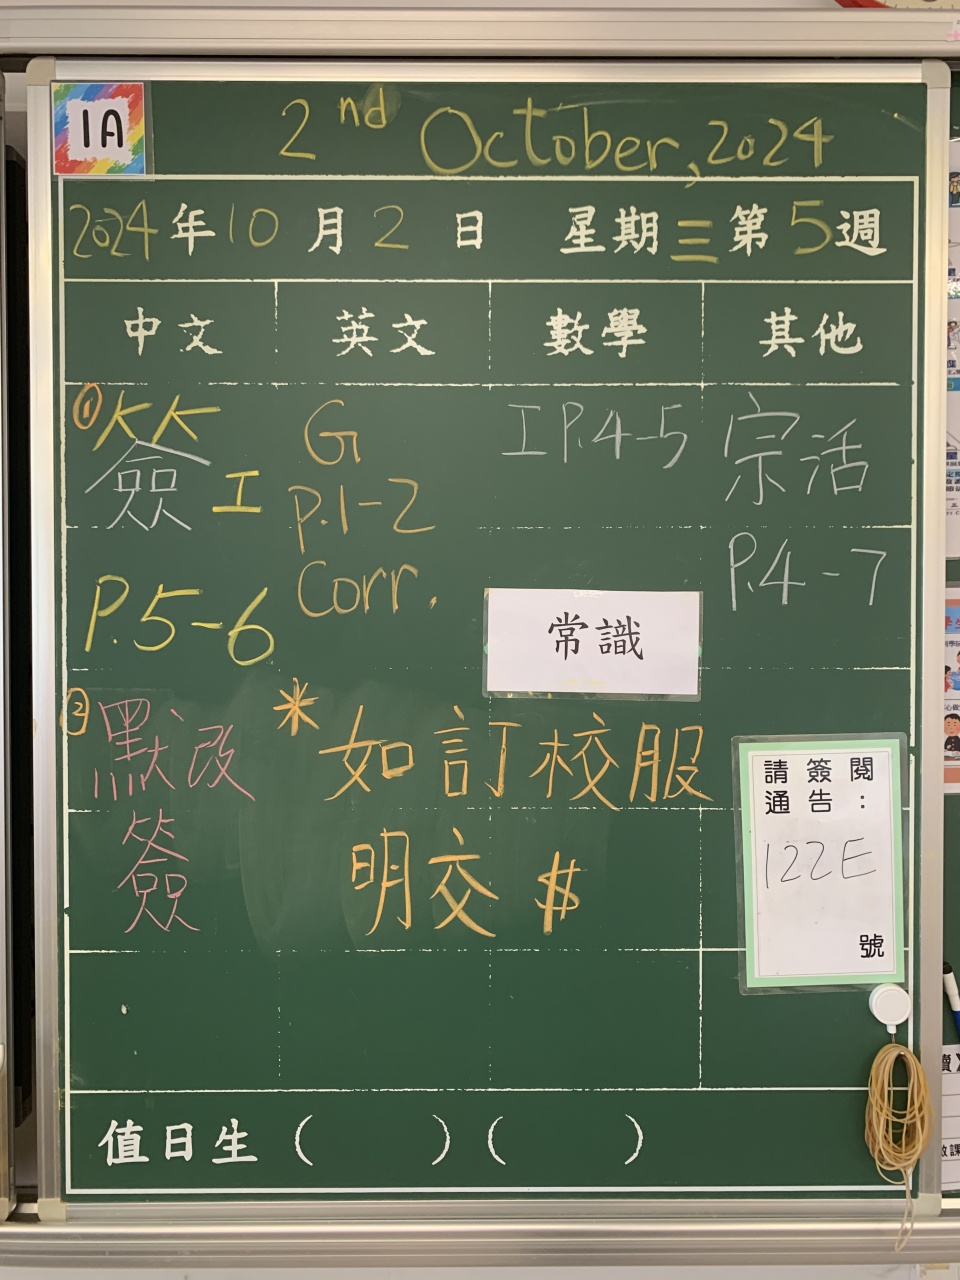 1A
2nd October, 2024
2024年10月2日 星期三第5週
中文 英文 數學 其他
① 簽工
P.5-6
② 默改
簽
G
P.1-2
Corr.
工P.4-5
常識
宗活
P.4-7
* 如訂校服
明交 $
請簽閱
通告:
122E
號
值日生 ( ) ( )